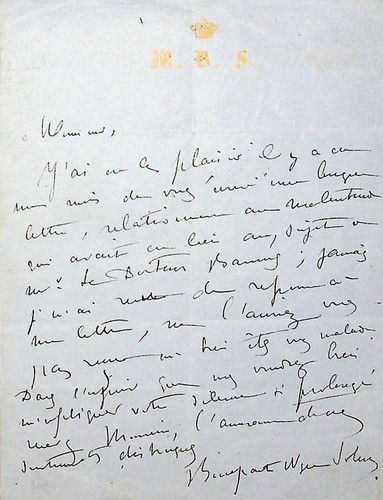 M. B. S.
Monsieur,
J'ai eu le plaisir il y a un
mois de vous une longue
lettre, relativement au malentendu
qui avait eu lieu au sujet de
Mr. le Docteur ; jamais
je n'ai de réponse à
ma lettre, ne l'auriez vous
pas reçue ou bien êtes vous malade
Dans l'espoir que vous voudrez bien
m'expliquer votre silence si prolongé
Monsieur, l'assurance de mes
sentiments distingués
Bonaparte Wyse Solms